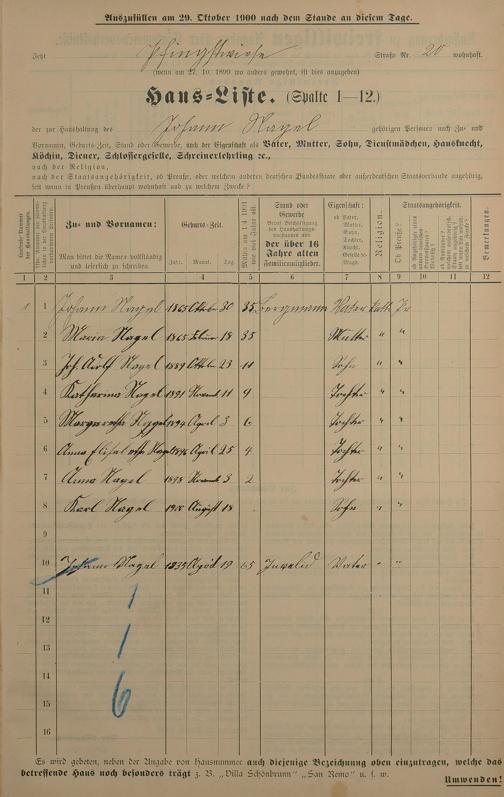 Auszufüllen am 29. Oktober 1900 nach dem Stande an diesem Tage.
Jetzt Pfingstwiese Straße Nr. 20 wohnhaft.
(wenn am 27. 10. 1899 wo anders gewohnt, ist dies anzugeben)
Haus-Liste. (Spalte 1—12.)
der zur Haushaltung des Johann Nagel gehörigen Personen nach Zu- und
Vornamen, Geburts-Zeit, Stand oder Gewerbe, nach der Eigenschaft als Vater, Mutter, Sohn, Dienstmädchen, Hausknecht,
Köchin, Diener, Schlossergeselle, Schreinerlehrling ꝛc.,
nach der Religion,
nach der Staatsangehörigkeit, ob Preuße, oder welchem anderen deutschen Bundesstaate oder außerdeutschen Staatsverbande angehörig,
seit wann in Preußen überhaupt wohnhaft und zu welchem Zwecke?
Zu- und Vornamen:
Man bittet die Namen vollständig und leserlich zu schreiben.
Geburts-Zeit.
Jahr. Monat. Tag.
Stand oder Gewerbe
der über 16 Jahre alten Familienmitglieder.
Eigenschaft:
ob Vater, Mutter, Sohn, Tochter, Knecht, Geselle, Magd.
Religion.
Staatsangehörigkeit.
Ob Preuße?
Bemerkungen.
1 2 3 4 5 6 7 8 9 10 11 12
1 1 Johann Nagel 1865 Oktober 30 35 Bergmann Vater kath. Pr
2 Maria Nagel 1865 Februar 18 35 Mutter " "
3 Joh. Adolf Nagel 1889 Oktober 23 11 Sohn " "
4 Katharina Nagel 1891 Novemb 11 9 Tochter " "
5 Margaretha Nagel 1894 April 3 6 Tochter " "
6 Anna Elisabetha Nagel 1896 April 25 4 Tochter " "
7 Anna Nagel 1898 Novemb 3 2 Tochter " "
8 Karl Nagel August 18 Sohn " "
9
10 Johann Nagel 1835 19 65 Invalid Vater " "
11
12
13
14
15
16
1
1
6
Es wird gebeten, neben der Angabe von Hausnummer auch diejenige Bezeichnung oben einzutragen, welche das
betreffende Haus noch besonders trägt z. B. „Villa Schönbrunn" „San Remo" u. s. w.
Umwenden!